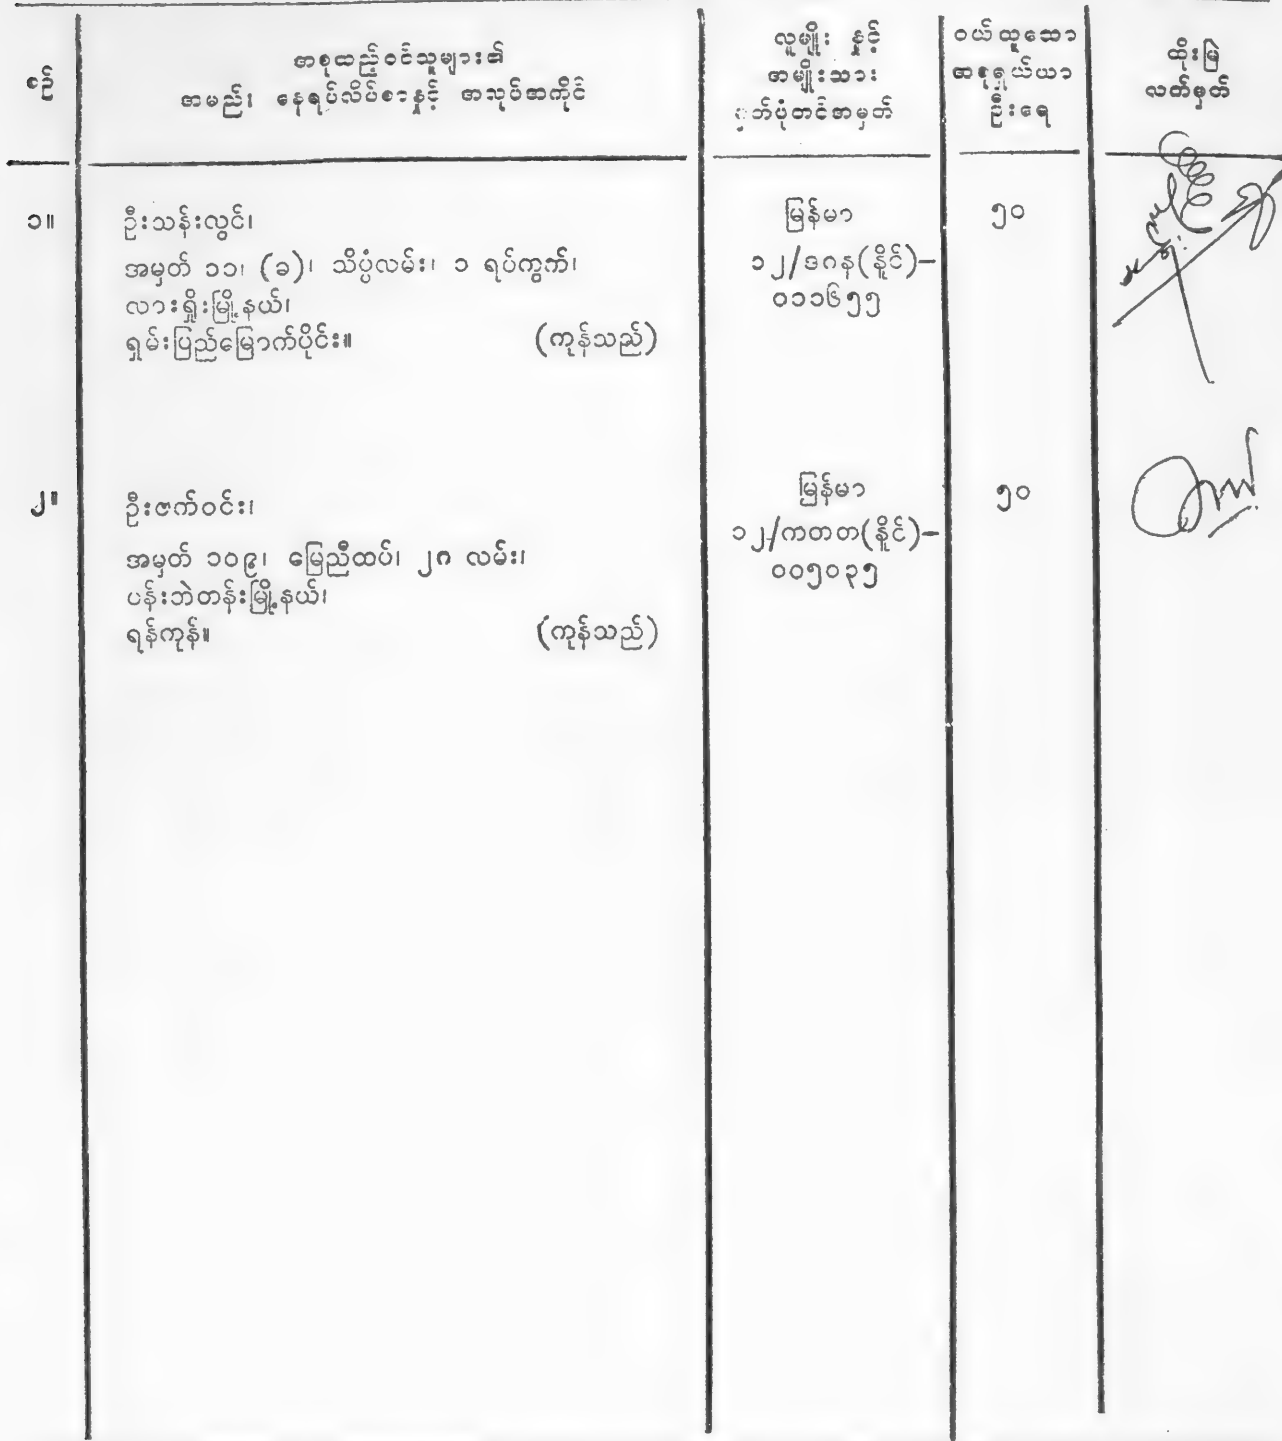 စဉ်
အစုထည့်ဝင်သူများ၏
အမည်၊ နေရပ်လိပ်စာနှင့် အလုပ်အကိုင်
လူမျိုး နှင့်
အမျိုးသား
မှတ်ပုံတင်အမှတ်
ဝယ်ယူသော
အစုရှယ်ယာ
ဦးရေ
ထိုးမြဲ
လက်မှတ်
၁။
ဦးသန်းလွင်၊
အမှတ် ၁၁၊ (ခ)၊ သိပ္ပံလမ်း၊ ၁ ရပ်ကွက်၊
လားရှိုးမြို့နယ်၊
ရှမ်းပြည်မြောက်ပိုင်း။ (ကုန်သည်)
မြန်မာ
၁၂/ဒဂန(နိုင်)–
၀၁၁၆၅၅
၅၀
၂။
ဦးဇက်ဝင်း၊
အမှတ် ၁၀၉၊ မြေညီထပ်၊ ၂၈ လမ်း၊
ပန်းဘဲတန်းမြို့နယ်၊
ရန်ကုန်။ (ကုန်သည်)
မြန်မာ
၁၂/ကတတ(နိုင်)–
၀၀၅၀၃၅
၅၀